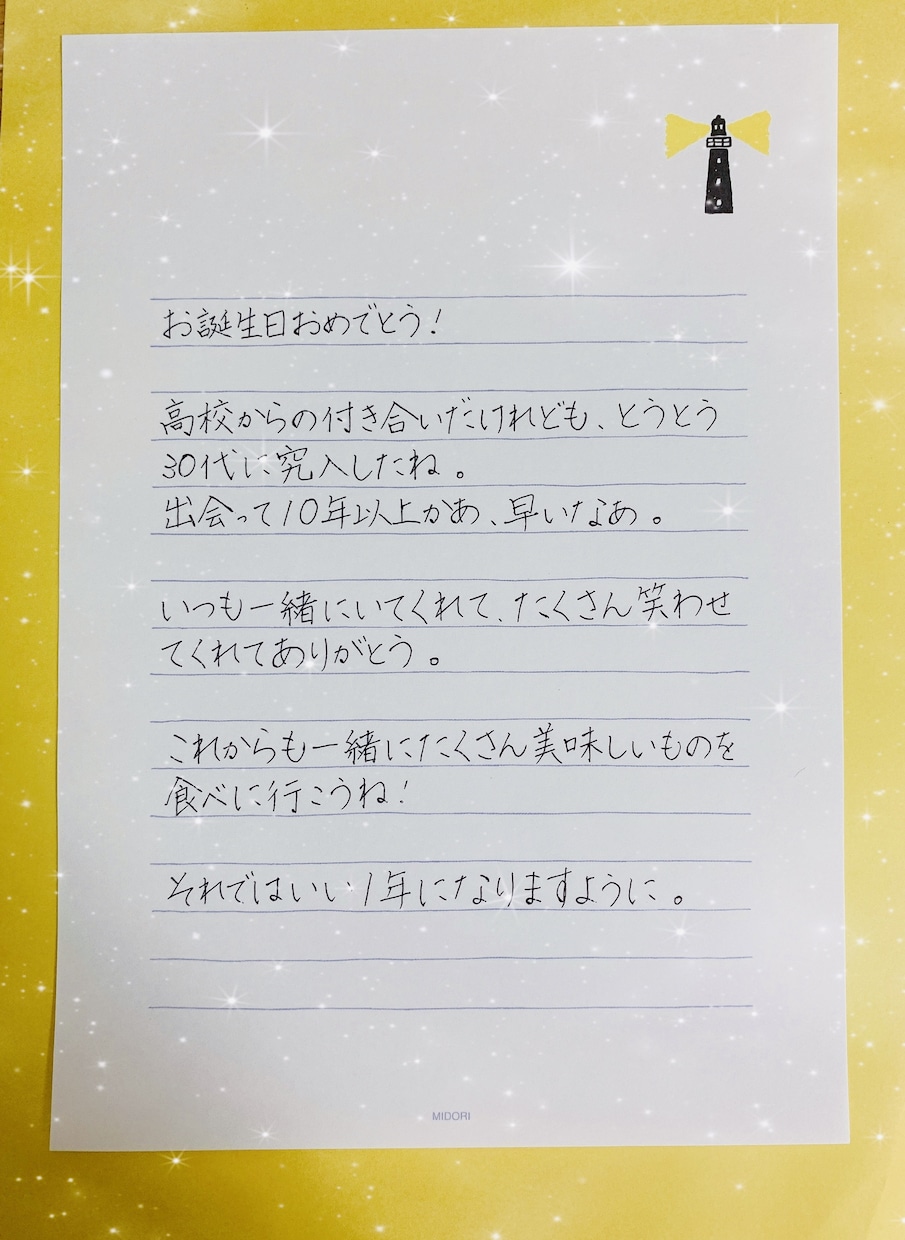 お誕生日おめでとう!
高校からの付き合いだけれども、とうとう
30代に究入したね。
出会って10年以上かあ、早いなあ。
いつも一緒にいてくれて、たくさん笑わせ
てくれてありがとう。
これからも一緒にたくさん美味しいものを
食べに行こうね!
それではいい1年になりますように。
MIDORI